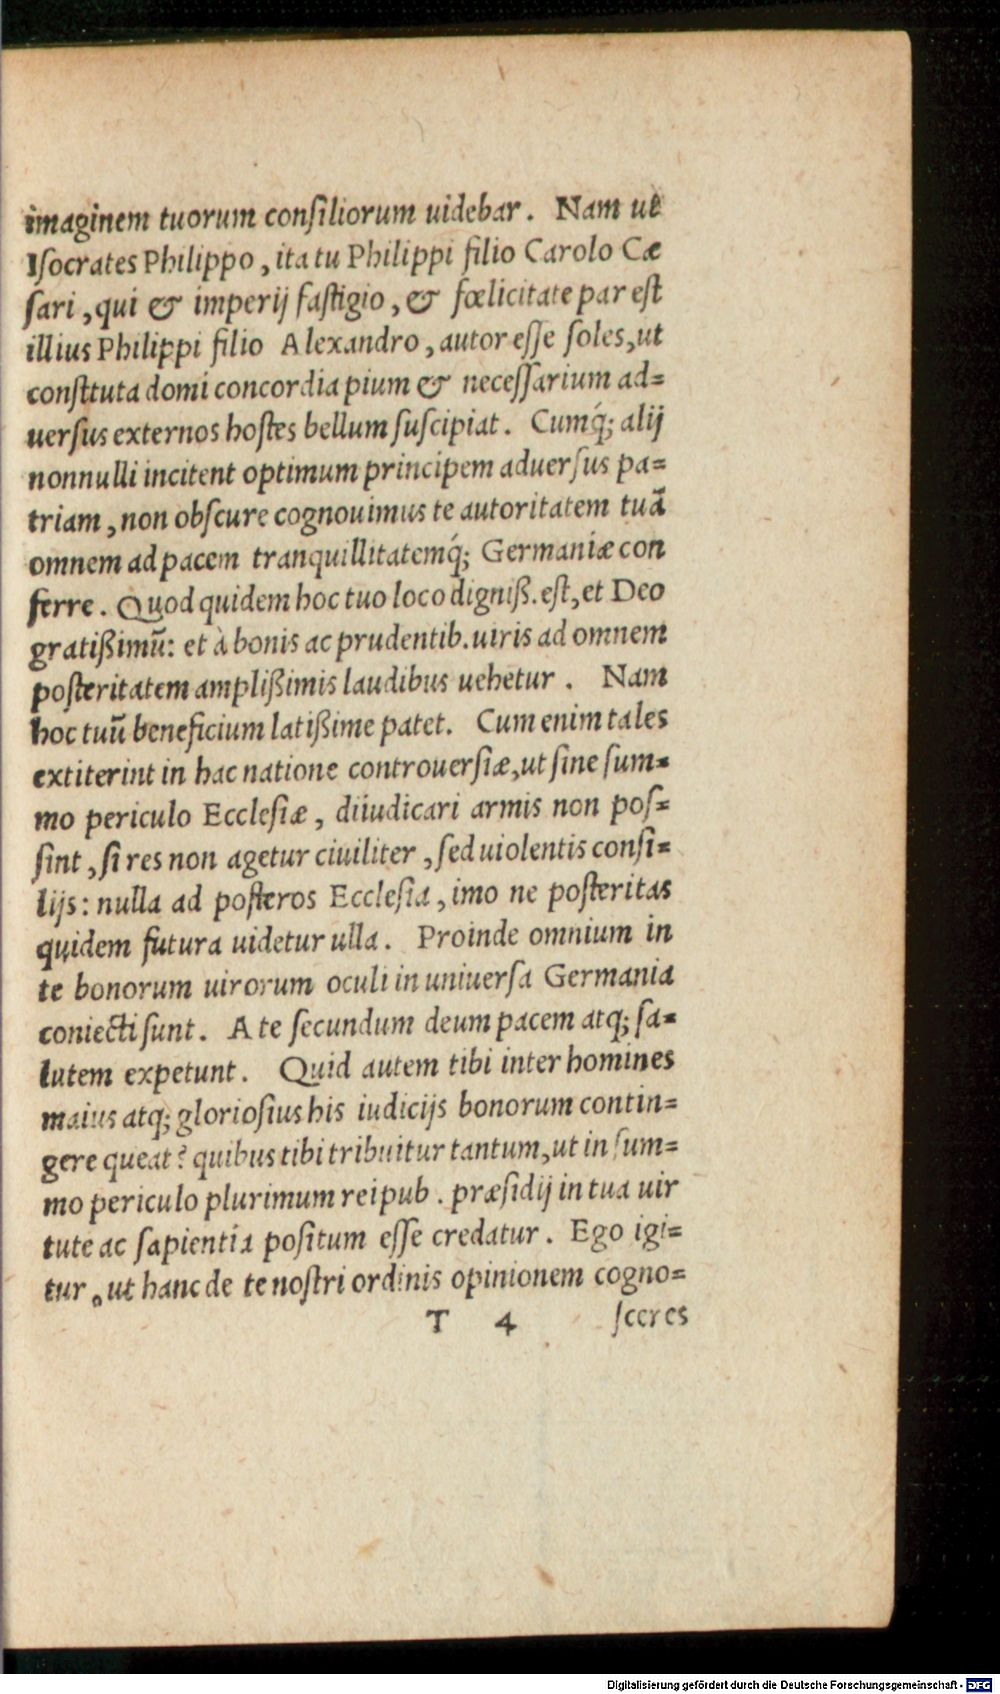 imaginem tuorum consiliorum uidebar. Nam ut
Isocrates Philippo, ita tu Philippi filio Carolo Cæ
sari, qui & imperij fastigio, & fœlicitate par est
illius Philippi filio Alexandro, autor esse soles, ut
constituta domi concordia pium & necessarium ad=
uersus externos hostes bellum suscipiat. Cumq́; alij
nonnulli incitent optimum principem aduersus pa=
triam, non obscure cognouimus te autoritatem tuā
omnem ad pacem tranquillitatemq́; Germaniæ con
ferre. Quod quidem hoc tuo loco digniß. est, et Deo
gratißimū: et à bonis ac prudentib. uiris ad omnem
posteritatem amplißimis laudibus uehetur. Nam
hoc tuū beneficium latißime patet. Cum enim tales
extiterint in hac natione controuersiæ, ut sine sum=
mo periculo Ecclesiæ, diiudicari armis non pos=
sint, si res non agetur ciuiliter, sed uiolentis consi=
lijs: nulla ad posteros Ecclesia, imo ne posteritas
quidem futura uidetur ulla. Proinde omnium in
te bonorum uirorum oculi in uniuersa Germania
coniecti sunt. A te secundum deum pacem atq; sa=
lutem expetunt. Quid autem tibi inter homines
maius atq; gloriosius his iudicijs bonorum contin=
gere queat? quibus tibi tribuitur tantum, ut in sum=
mo periculo plurimum reipub. præsidij in tua uir
tute ac sapientia positum esse credatur. Ego igi=
tur, ut hanc de te nostri ordinis opinionem cogno=
T 4 sceres
Digitalisierung gefördert durch die Deutsche Forschungsgemeinschaft - DFG